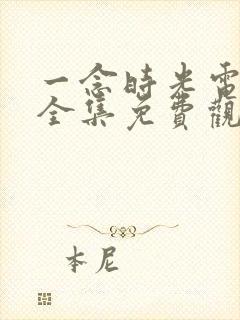 一念時光電
全集免費觀
本尼